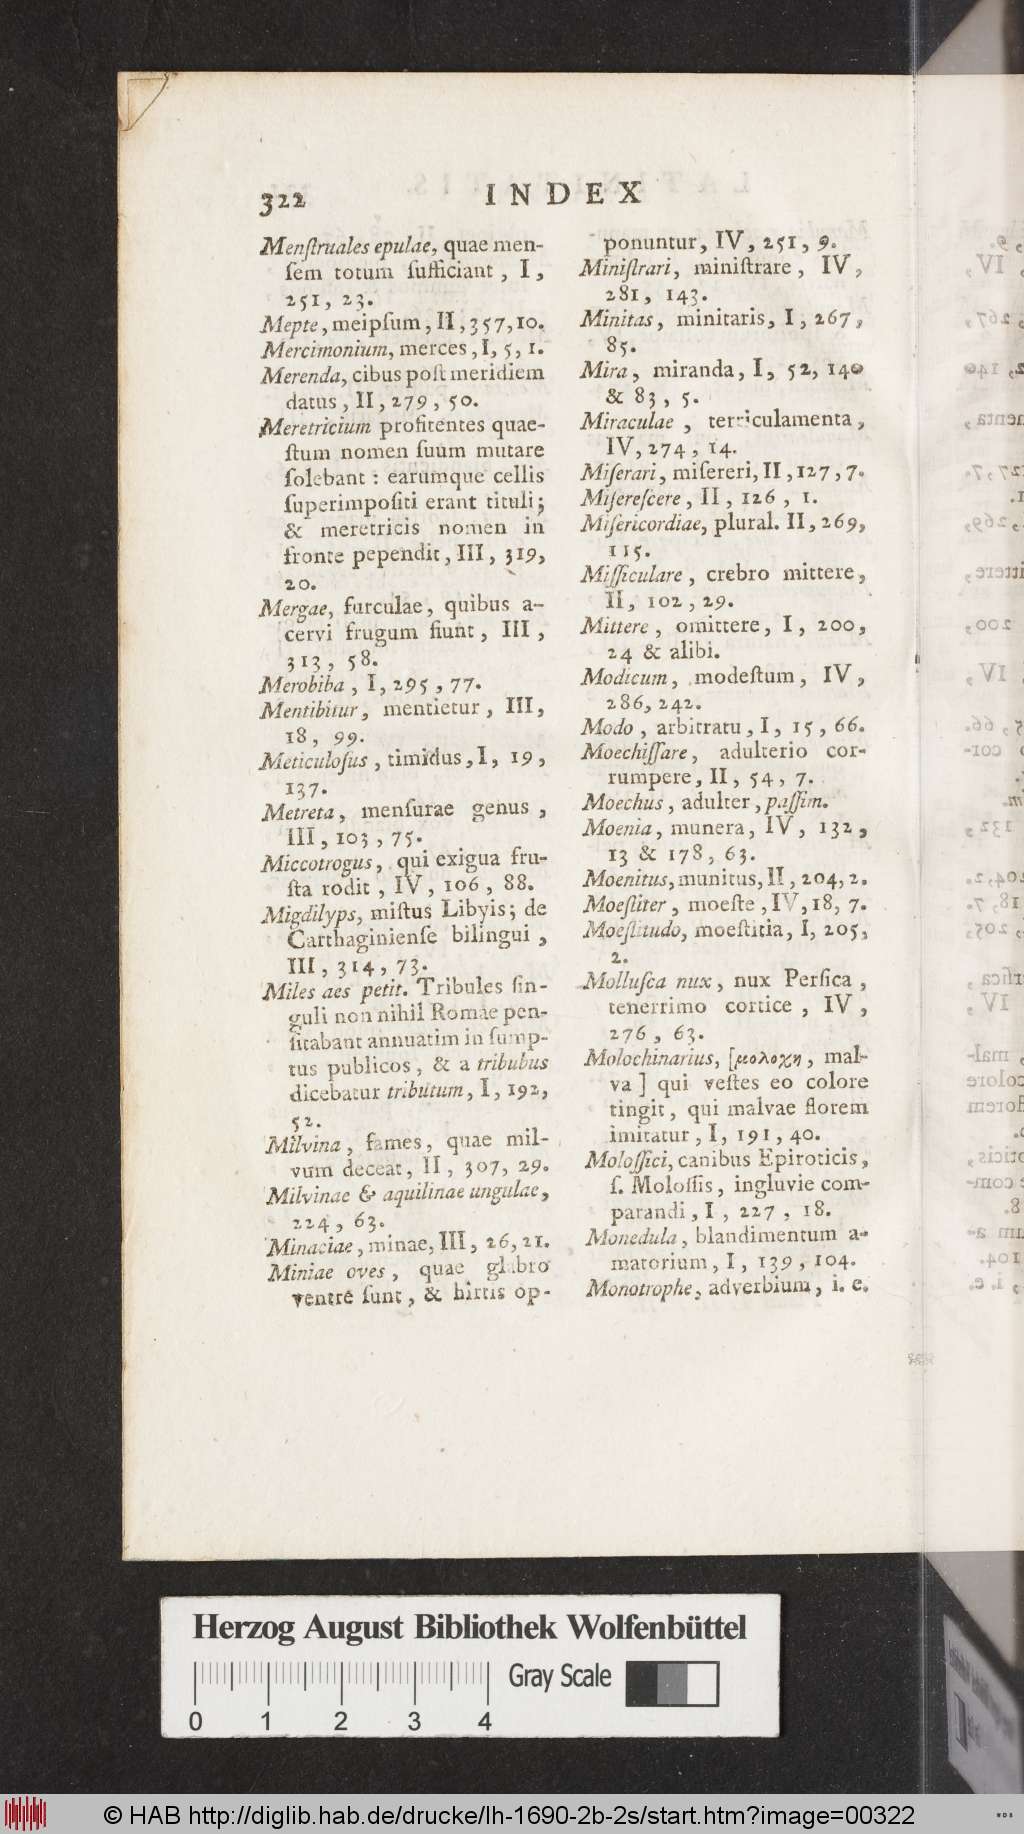 322
INDEX
Menſtruales epulae, quae men-
ſem totum ſufficiant, I,
251, 23.
Mepte, meipſum, II, 357, 10.
Mercimonium, merces, I, 5, 1.
Merenda, cibus poſt meridiem
datus, II, 279, 50.
Meretricium profitentes quae-
ſtum nomen ſuum mutare
ſolebant: earumque cellis
ſuperimpoſiti erant tituli;
& meretricis nomen in
fronte pependit, III, 319,
20.
Mergae, furculae, quibus a-
cervi frugum fiunt, III,
313, 58.
Merobiba, I, 295, 77.
Mentibitur, mentietur, III,
18, 99.
Meticuloſus, timidus, I, 19,
137.
Metreta, menſurae genus,
III, 103, 75.
Miccotrogus, qui exigua fru-
ſta rodit, IV, 106, 88.
Migdilyps, miſtus Libyis; de
Carthaginienſe bilingui,
III, 314, 73.
Miles aes petit. Tribules ſin-
guli non nihil Romae pen-
ſitabant annuatim in ſump-
tus publicos, & a tribubus
dicebatur tributum, I, 192,
52.
Milvina, fames, quae mil-
vum deceat, II, 307, 29.
Milvinae & aquilinae ungulae,
224, 63.
Minaciae, minae, III, 26, 21.
Miniae oves, quae glabro
ventre ſunt, & hirtis op-
ponuntur, IV, 251, 9.
Miniſtrari, miniſtrare, IV,
281, 143.
Minitas, minitaris, I, 267,
85.
Mira, miranda, I, 52, 140
& 83, 5.
Miraculae, terriculamenta,
IV, 274, 14.
Miſerari, miſereri, II, 127, 7.
Miſereſcere, II, 126, 1.
Miſericordiae, plural. II, 269,
115.
Miſſiculare, crebro mittere,
II, 102, 29.
Mittere, omittere, I, 200,
24 & alibi.
Modicum, modeſtum, IV,
286, 242.
Modo, arbitratu, I, 15, 66.
Moechiſſare, adulterio cor-
rumpere, II, 54, 7.
Moechus, adulter, paſſim.
Moenia, munera, IV, 132,
13 & 178, 63.
Moenitus, munitus, II, 204, 2.
Moeſtiter, moeſte, IV, 18, 7.
Moeſtitudo, moeſtitia, I, 205,
2.
Molluſca nux, nux Perſica,
tenerrimo cortice, IV,
276, 63.
Molochinarius, [μολοχη, mal-
va] qui veſtes eo colore
tingit, qui malvae florem
imitatur, I, 191, 40.
Moloſſici, canibus Epiroticis,
ſ. Moloſſis, ingluvie com-
parandi, I, 227, 18.
Monedula, blandimentum a-
matorium, I, 139, 104.
Monotrophe, adverbium, i. e.
Herzog August Bibliothek Wolfenbüttel
Gray Scale
0 1 2 3 4
© HAB http://diglib.hab.de/drucke/lh-1690-2b-2s/start.htm?image=00322